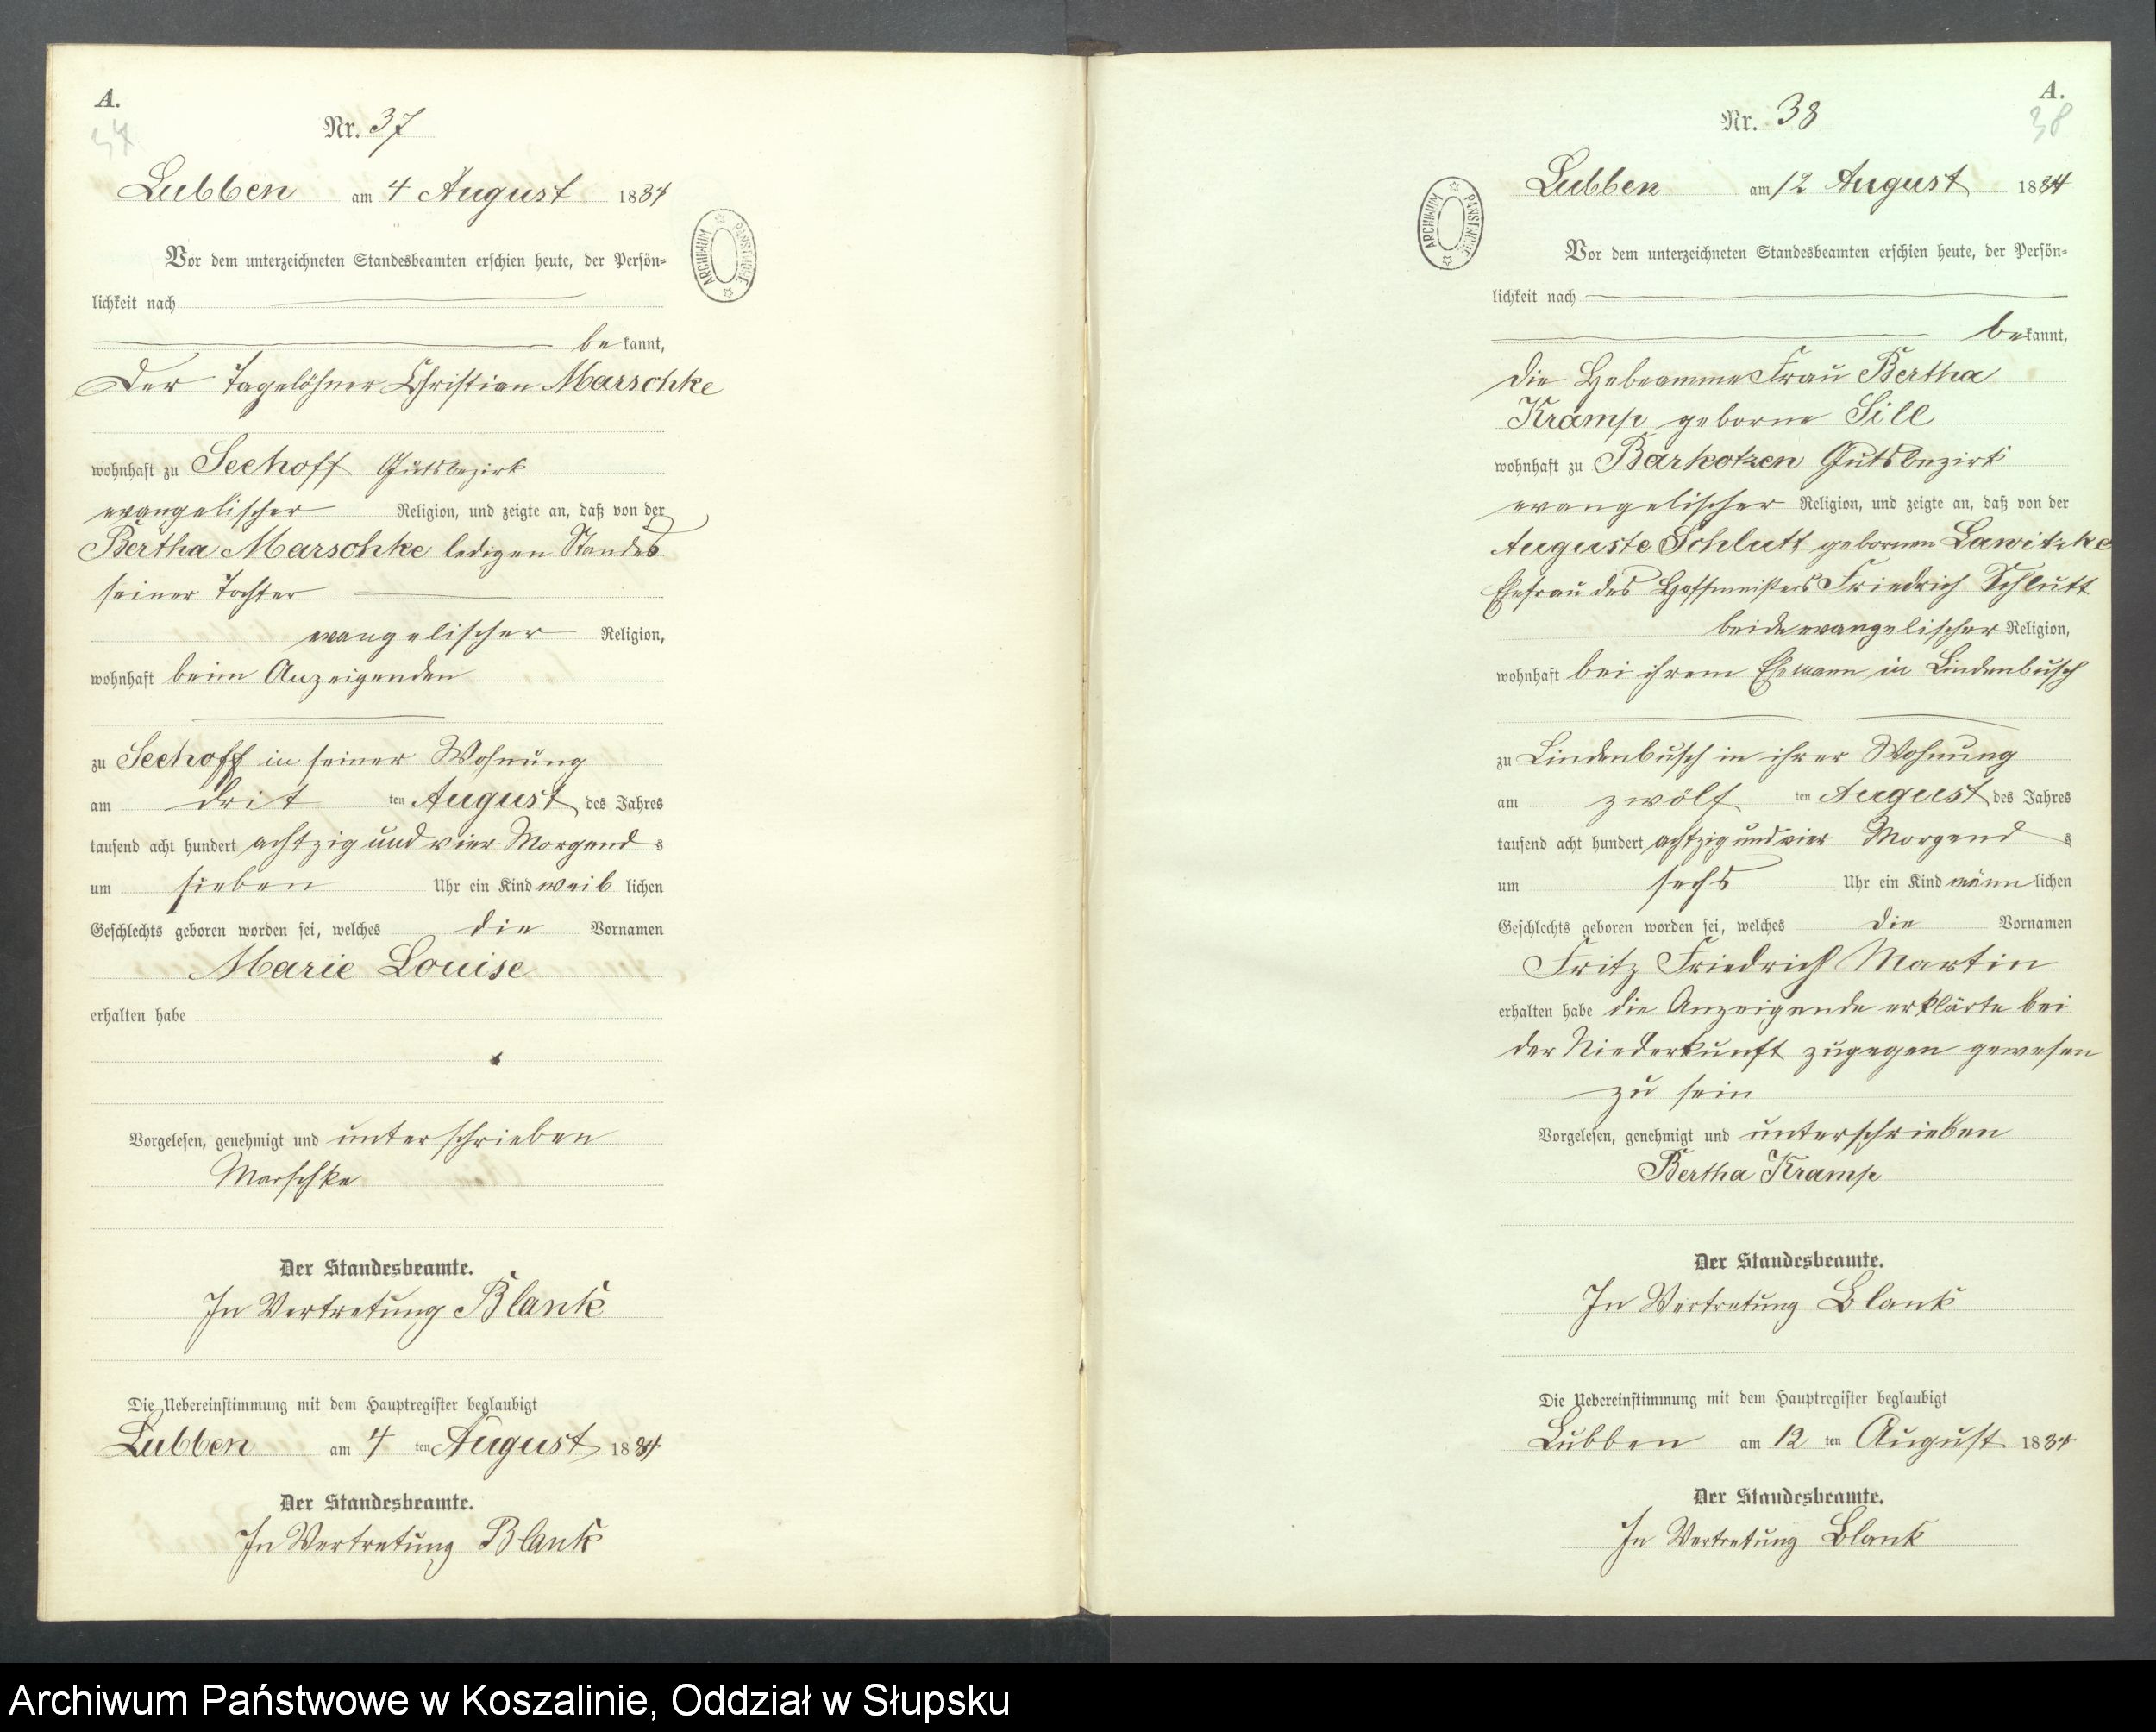 A.
37
Nr. 37
Lubben am 4 August 1884
Vor dem unterzeichneten Standesbeamten erschien heute, der Persön-
lichkeit nach
bekannt,
Der Tagelöhner Christian Marschke
wohnhaft zu Seehoff Gutsbezirk
evangelischer Religion, und zeigte an, daß von der
Bertha Marschke ledigen Standes
seiner Tochter
evangelischer Religion,
wohnhaft beim Anzeigenden
zu Seehoff in seiner Wohnung
am drit ten August des Jahres
tausend acht hundert achtzig und vier Morgends
um sieben Uhr ein Kind weiblichen
Geschlechts geboren worden sei, welches die Vornamen
Marie Louise
erhalten habe
Vorgelesen, genehmigt und unterschrieben
Marschke
Der Standesbeamte.
In Vertretung Blank
Die Uebereinstimmung mit dem Hauptregister beglaubigt
Lubben am 4 ten August 1884
Der Standesbeamte.
In Vertretung Blank
ARCHIWUM PAŃSTWOWE
A.
38
Nr. 38
Lubben am 12 August 1884
Vor dem unterzeichneten Standesbeamten erschien heute, der Persön-
lichkeit nach
bekannt,
die Hebeamme Frau Bertha
Kramp geborne Sill
wohnhaft zu Barkotzen Gutsbezirk
evangelischer Religion, und zeigte an, daß von der
Auguste Schlutt gebornen Lawitzke
Ehefrau des Hoffmeisters Friedrich Schlutt
beide evangelischer Religion,
wohnhaft bei ihrem Ehemann in Lindenbusch
zu Lindenbusch in ihrer Wohnung
am zwölf ten August des Jahres
tausend acht hundert achtzig und vier Morgends
um sechs Uhr ein Kind männlichen
Geschlechts geboren worden sei, welches die Vornamen
Fritz Friedrich Martin
erhalten habe die Anzeigende erklärte bei
der Niederkunft zugegen gewesen
zu sein
Vorgelesen, genehmigt und unterschrieben
Bertha Kramp
Der Standesbeamte.
In Vertretung Blank
Die Uebereinstimmung mit dem Hauptregister beglaubigt
Lubben am 12 ten August 1884
Der Standesbeamte.
In Vertretung Blank
ARCHIWUM PAŃSTWOWE
Archiwum Państwowe w Koszalinie, Oddział w Słupsku